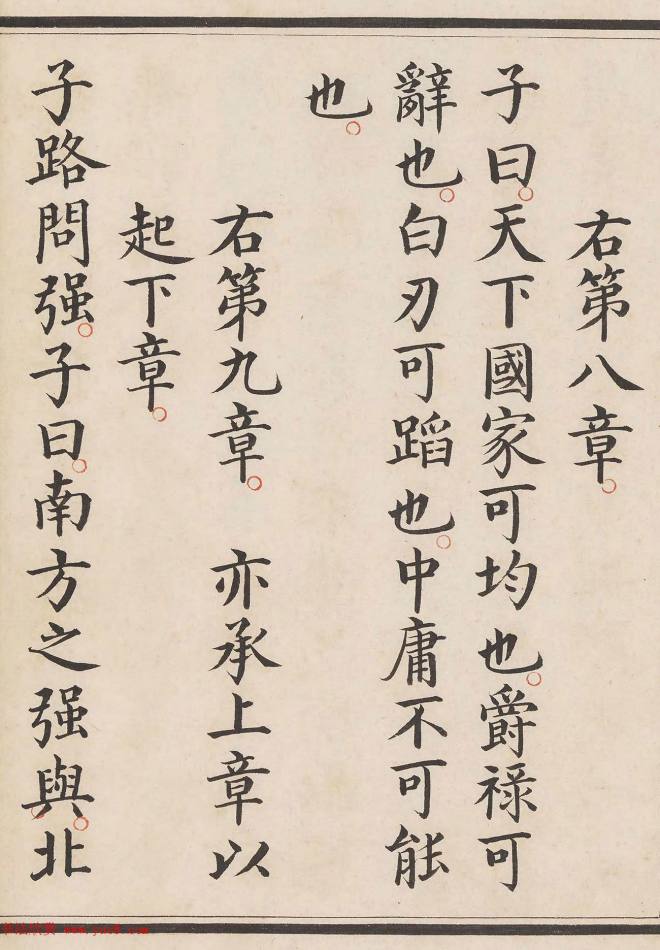 右第八章。
子曰。天下國家可均也。爵祿可
辭也。白刃可蹈也。中庸不可能
也。
右第九章。 亦承上章以
起下章。
子路問强。子曰。南方之强與。北